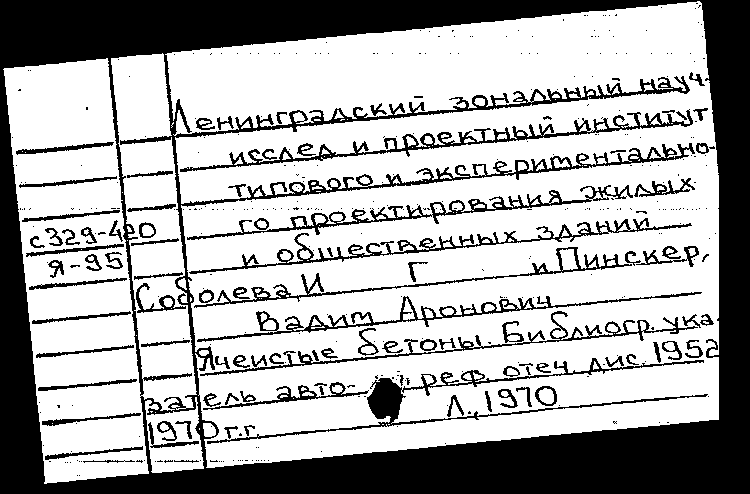 Ленинградский зональный науч-
исслед и проектный институт
типового и экспериментально-
с329-420 го проектирования жилых
Я-95 и общественных зданий
Соболева, И Г и Пинскер,
Вадим Аронович
Ячеистые бетоны. Библиогр. ука-
затель авто- реф. отеч. дис. 1952
1970 г.г. Л., 1970